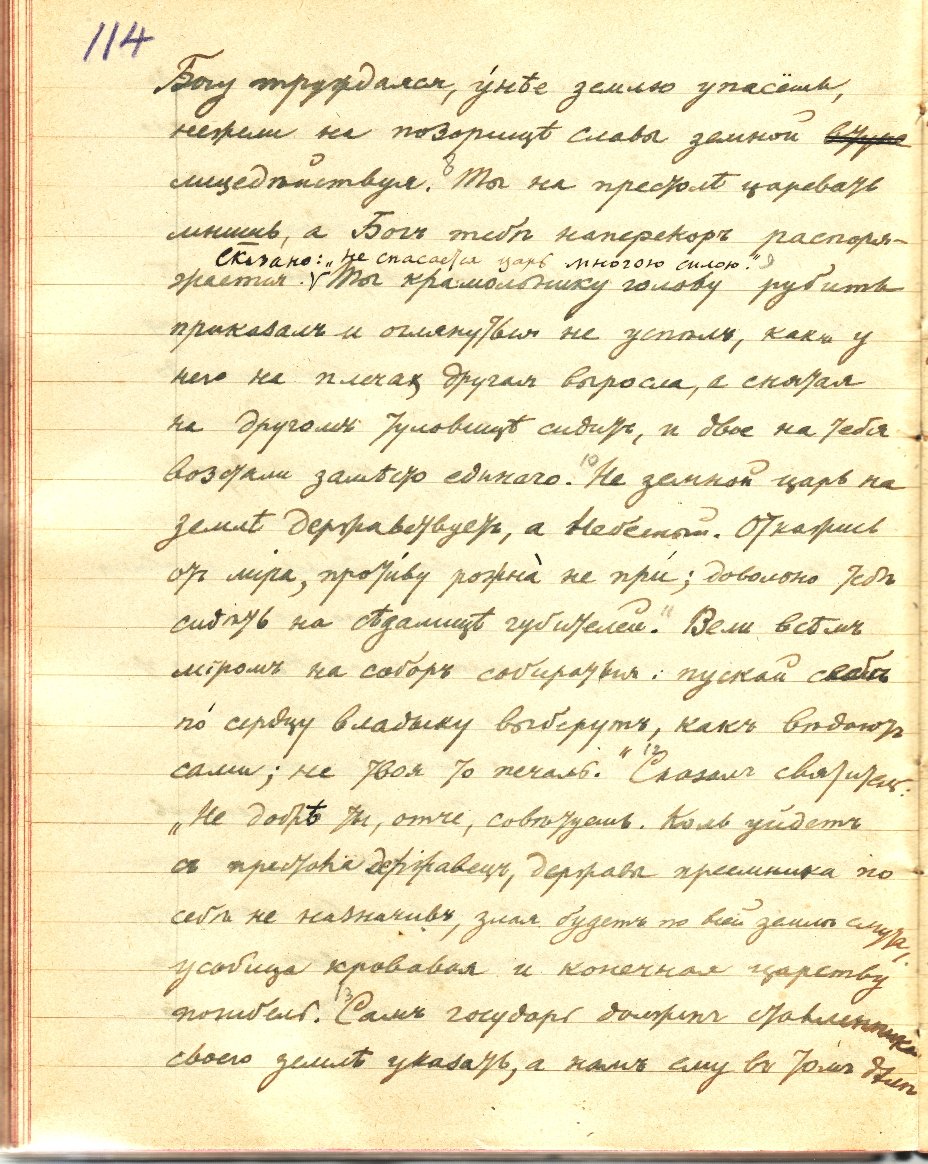 114
Богу труждаяся, у́нѣе землю упасёшь,
нежели на позорищѣ славы земной
лицедѣйствуя. 8 Ты на престолѣ царевать
мнишь, а Богъ тебѣ наперекоръ распоря-
Сказано: „не спасается царь многою силою.“ 9
жается. Ты крамольнику голову рубить
приказалъ и оглянуться не успѣлъ, какъ у
него на плечахъ другая выросла, а снятая
на другомъ туловищѣ сидитъ, и двое на тебя
возстали замѣсто единаго. 10 Не земной царь на
землѣ державствуетъ, а Небесный. Откажись
отъ міра, проти́ву рожна̀ не при́; довольно тебѣ
сидѣть на сѣдалищѣ губителей.“ 11 Вели всѣмъ
міромъ на соборъ собираться: пускай себѣ
по́ сердцу владыку выберутъ, какъ вѣдаютъ
сами; не твоя то печаль.“ 12 Сказалъ святитель:
„Не добрѣ ты, отче, совѣтуешь. Коль уйдетъ
съ престола державецъ, державы преемника по
себѣ не назначивъ, злая будетъ по всей землѣ смута,
усобица кровавая и конечная царству
погибель. 13 Самъ государь долженъ ставленника
своего землѣ указать, а намъ ему въ томъ дѣлѣ